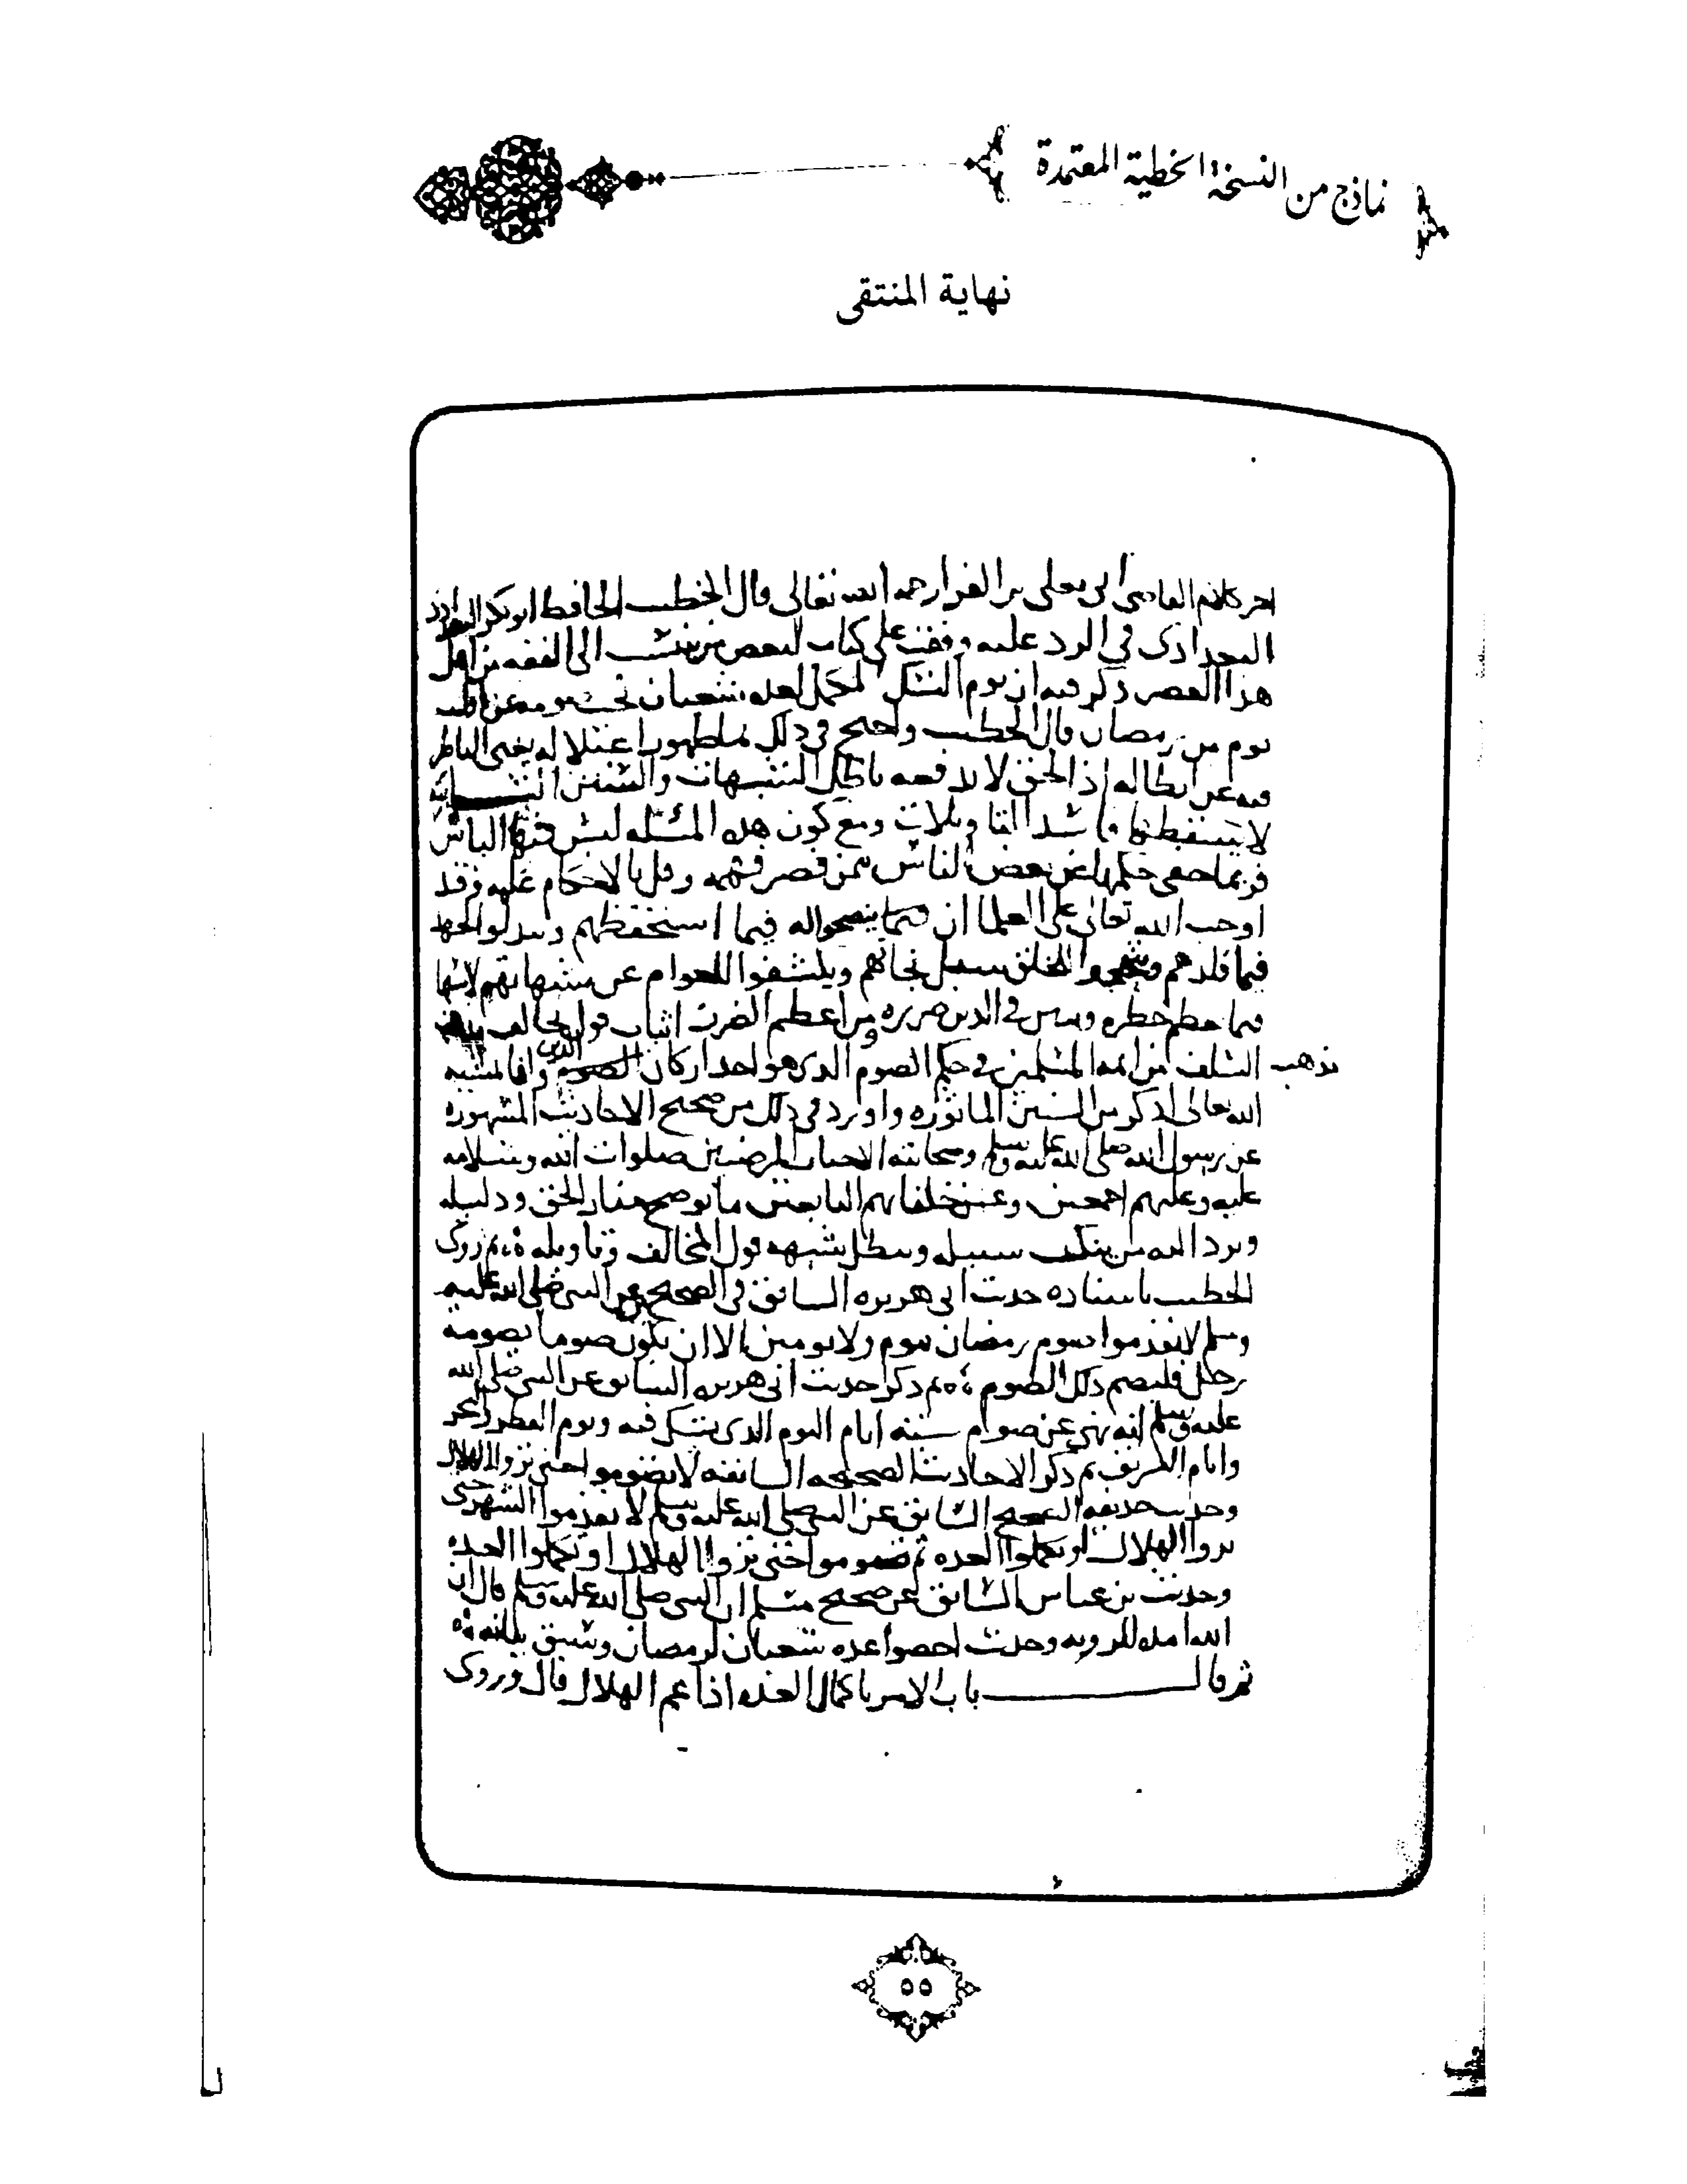 نماذج من النسخة الخطية المعتمدة
نهاية المنتقى
اخر كلام القاضى ابى يعلى بن الفرا رحمه الله تعالى قال الخطيب الحافظ ابو بكر
البغدادى فى الرد عليه وقفت على كتاب لبعض من ينتسب الى الفقه من اهل
هذا العصر ذكر فيه ان يوم الشك المكمل لعده شعبان يجب صومه عن اول
يوم من رمضان قال الخطيب واحتج فى ذلك بما ظهور اعتلاله يغنى الناظر
فيه عن ابطاله اذ الحق لا يدفعه باطل الشبهات والسنن الثابته
لا يسقطها فاسد التاويلات ومع كون هذه المسئله ليس فيها التباس
فربما خفى حكمها عن بعض الناس ممن قصر فهمه وقل بالاحكام علمه وقد
اوجب الله تعالى على العلما ان ينصحوا له فيما استحفظهم ويبذلوا الجهد
فيما قلدهم وينهجوا للخلق سبيل نجاتهم ويكشفوا للعوام عن شبهاتهم لاسيما
فيما عظم خطره وبين فى الدين ضرره ومن اعظم الضرر اثبات قول يخالف
مذهب السلف من ائمه المسلمين فى حكم الصوم الذى هو احد اركان الدين وانا بمشيه
الله تعالى اذكر من السنن الماثوره واورد فى ذلك من صحيح الاحاديث المشهوره
عن رسول الله صلى الله عليه وسلم وصحابته الاخيار المرضيين صلوات الله وسلامه
عليه وعليهم اجمعين وعن خلفائهم التابعين ما يوضح منار الحق ودليله
ويرد الله من يتنكب سبيله ويبطل شبهه قول المخالف وتاويله ثم روى
الخطيب باسناده حديث ابى هريره السابق فى الصحيح عن النبى صلى الله عليه
وسلم لا تقدموا صوم رمضان بيوم ولا يومين الا ان يكون صوما يصومه
رجل فليصم ذلك الصوم ثم ذكر حديث ابى هريره السابق عن النبى صلى الله
عليه وسلم انه نهى عن صوام ستة ايام اليوم الذى يشك فيه ويوم الفطر والنحر
وايام التشريق ثم ذكر الاحاديث الصحيحه السابقه لا تصوموا حتى تروا الهلال
وحديث حذيفه الصحيح السابق عن النبى صلى الله عليه وسلم لا تقدموا الشهر حتى
تروا الهلال او تكملوا العده ثم صوموا حتى تروا الهلال او تكملوا العده
وحديث بن عباس السابق عن صحيح مسلم ان النبى صلى الله عليه وسلم قال ان
الله امده للرويه وحديث احصوا عده شعبان لرمضان وسبق بيانه
ثم قال باب الامر باكمال العده اذا غم الهلال قال وروى
٥٥